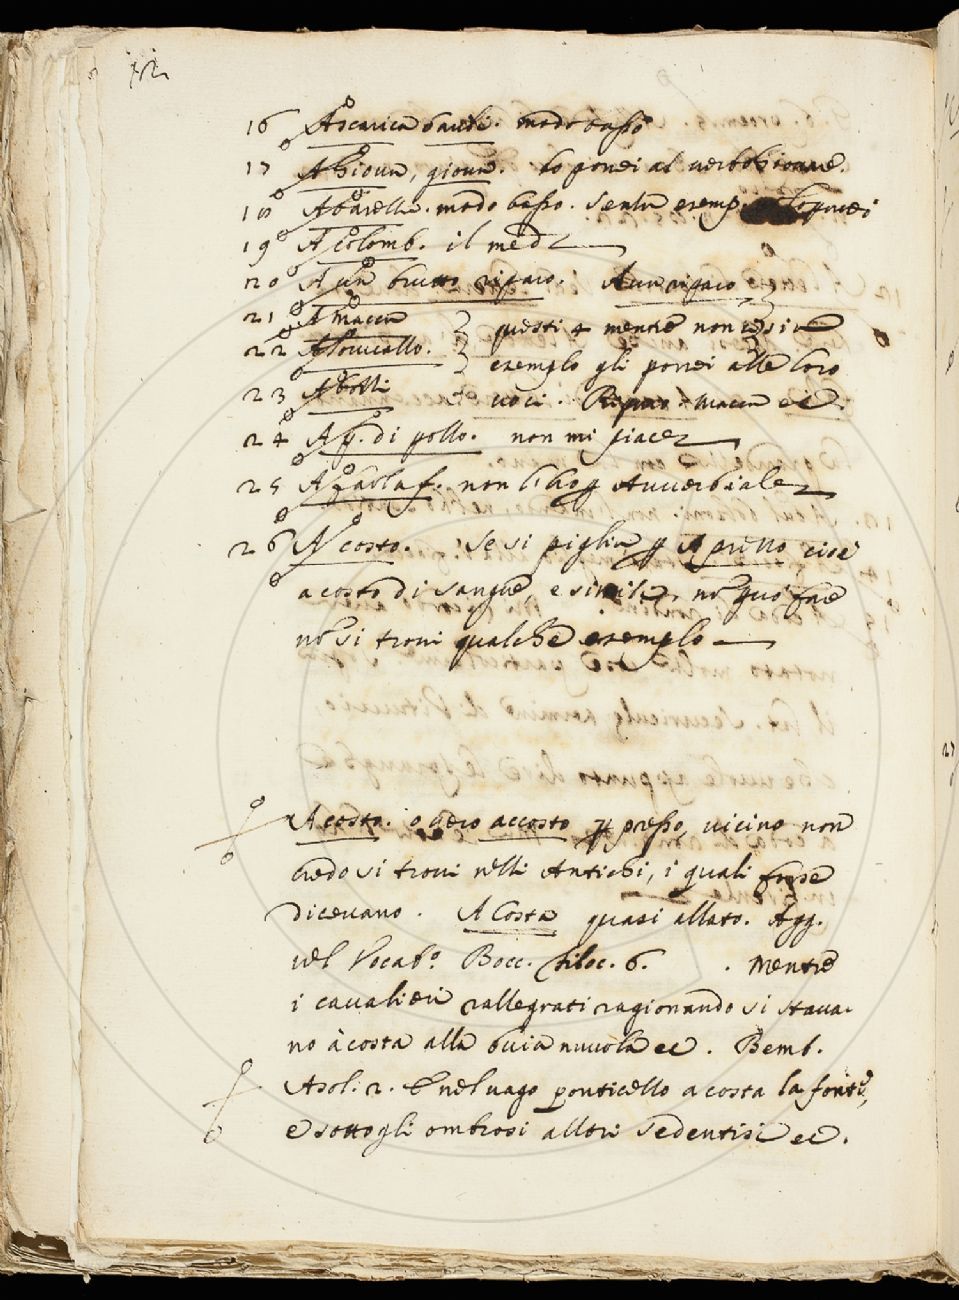 12
16 Ascarica barili. modo basso
17 A Giova, giova. lo ponei al verbo
18 A barella. modo basso. senza exemp.
19 A colomb. il med.
20 A un brutto riparo. A un riparo
21 A macca questi + mentre non
22 exemplo gli ponei alle loro
23 A bolli voci. Riparo. Macca ec.
24 A p. di pollo. non mi piace
25 non Avverbiale
26 A costo. se si piglia p A pretto cioè
a costo di sangue, e simile, no può fare
no si trovi qualche exemplo
Acosto. overo accosto p presso, vicino non
credo si trovi nelli Antichi, i quali forse
dicevano. A Costa quasi allato. Agg.
nel Vocab.º Bocc. filoc. 6. Mentre
i cavalieri rallegrati ragionando si stava-
no à costa alla buia nuvola ec. Bemb.
Asol. 2. E nel vago ponticello a costa la fonte,
e sotto gli ombrosi allori sedentisi ec.